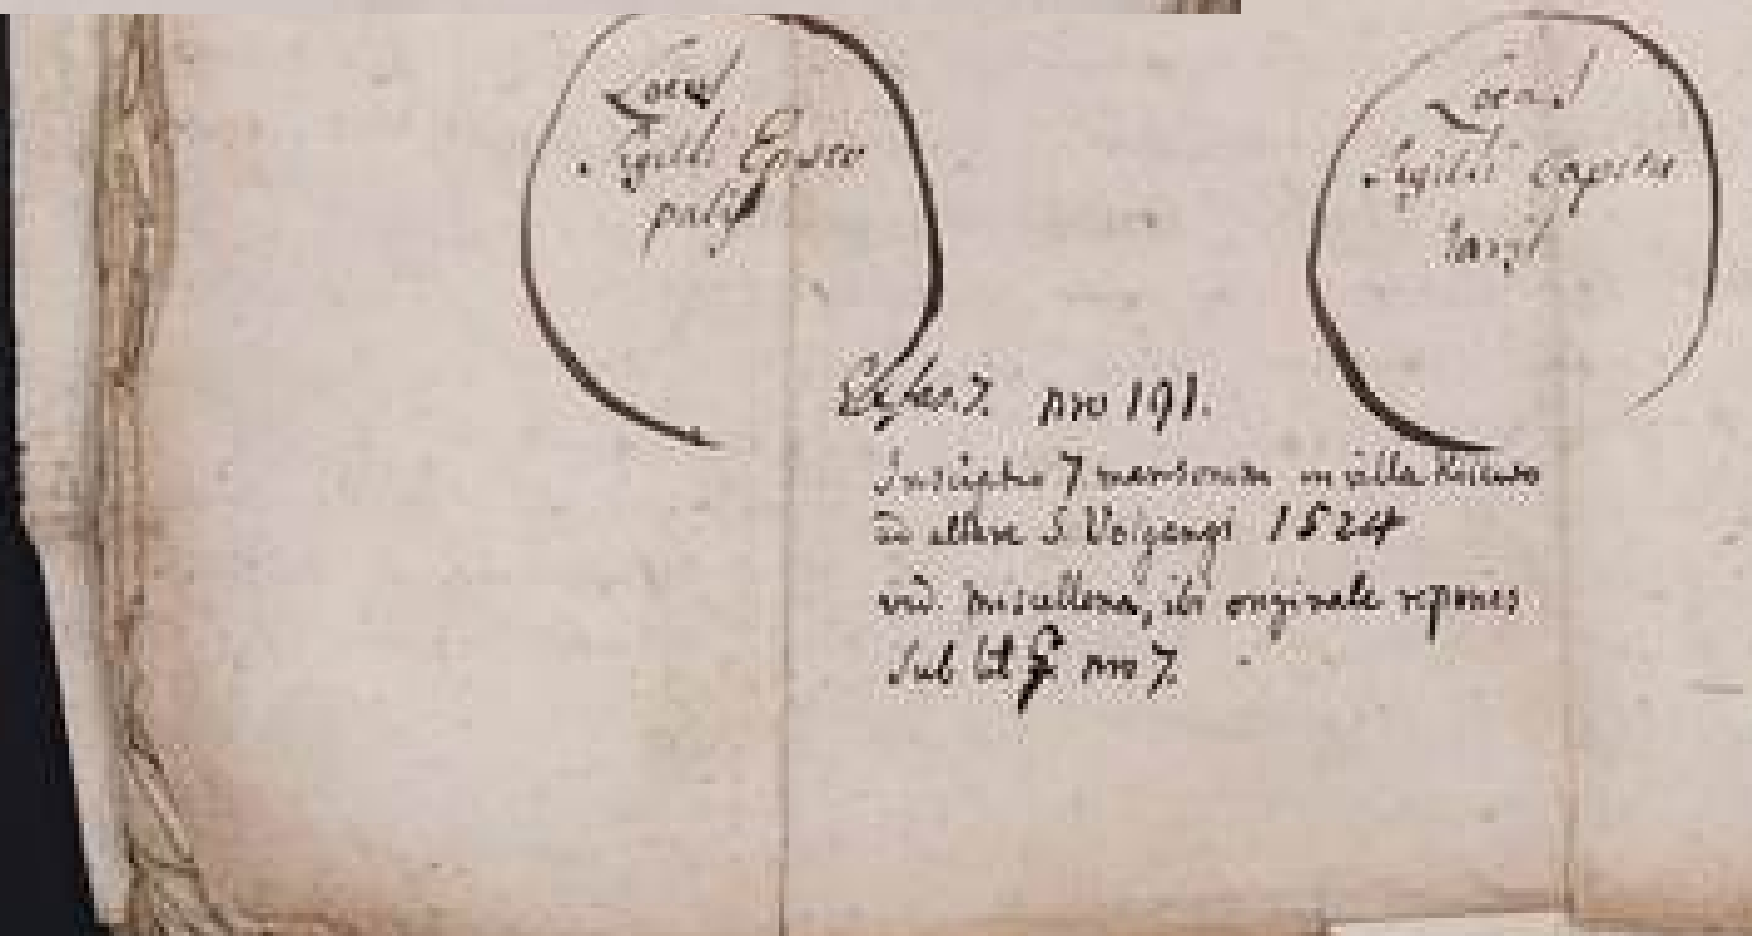 Locus
Sigilli Episco
palis
Locus
Sigilli Capitu
laris
nro 191.
Inscriptio 7 mansorum in villa
ad altare S. Volgangi 1524
vid. miscellena, ibi originale repones
sub lit nro 7.